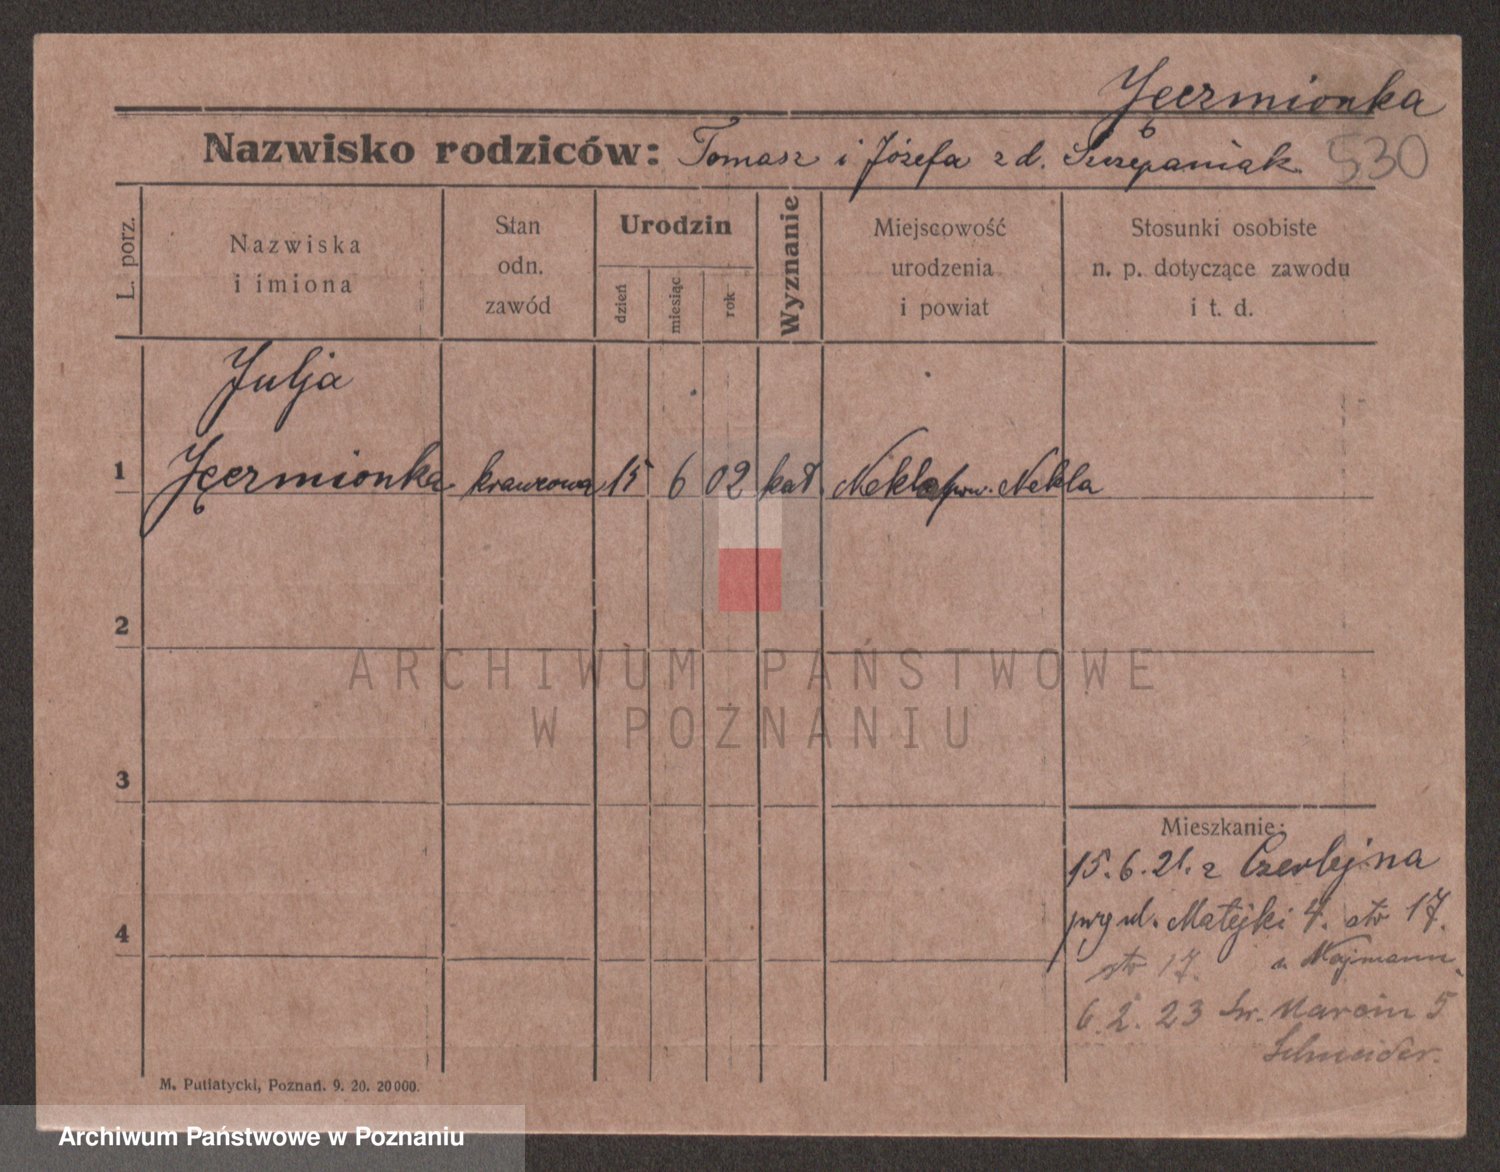 Jęczmionka
Nazwisko rodziców: Tomasz i Józefa z d. Szczepaniak 530
L. porz.
Nazwiska
i imiona
Stan
odn.
zawód
Urodzin
dzień
miesiąc
rok
Wyznanie
Miejscowość
urodzenia
i powiat
Stosunki osobiste
n. p. dotyczące zawodu
i t. d.
Julja
1 Jęczmionka krawcowa 15 6 02 kat. Nekla pow. Nekla
2
ARCHIWUM PAŃSTWOWE
W POZNANIU
3
Mieszkanie:
15.6.21. z Czerlejna
przy ul. Matejki 4. str 17.
4
str 17. u. Najmann.
6.2.23 Św. Marcin 5
Schneider.
M. Putiatycki, Poznań. 9. 20. 20000.
Archiwum Państwowe w Poznaniu